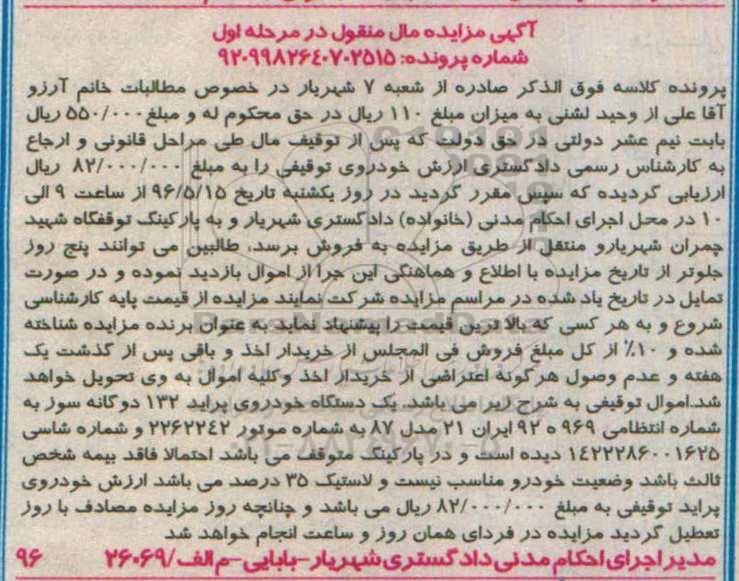 آگهی مزایده مال منقول در مرحله اول
شماره پرونده: ۹۲۰۹۹۸۲۶۴۰۷۰۲۵۱۵
پرونده کلاسه فوق الذکر صادره از شعبه ۷ شهریار در خصوص مطالبات خانم آرزو
آقا علی از وحید لشنی به میزان مبلغ ۱۱۰ ریال در حق محکوم له و مبلغ ۵۵۰/۰۰۰ ریال
بابت نیم عشر دولتی در حق دولت که پس از توقیف مال طی مراحل قانونی و ارجاع
به کارشناس رسمی دادگستری ارزش خودروی توقیفی را به مبلغ ۸۲/۰۰۰/۰۰۰ ریال
ارزیابی گردیده که سپس مقرر گردید در روز یکشنبه تاریخ ۹۶/۵/۱۵ از ساعت ۹ الی
۱۰ در محل اجرای احکام مدنی (خانواده) دادگستری شهریار و به پارکینگ توقفگاه شهید
چمران شهریارو منتقل از طریق مزایده به فروش برسد، طالبین می توانند پنج روز
جلوتر از تاریخ مزایده با اطلاع و هماهنگی این جرا از اموال بازدید نموده و در صورت
تمایل در تاریخ یاد شده در مراسم مزایده شرکت نمایند مزایده از قیمت پایه کارشناسی
شروع و به هر کسی که بالا ترین قیمت را پیشنهاد نماید به عنوان برنده مزایده شناخته
شده و ۱۰٪ از کل مبلغ فروش فی المجلس از خریدار اخذ و باقی پس از گذشت یک
هفته و عدم وصول هر گونه اعتراضی از خریدار اخذ و کلیه اموال به وی تحویل خواهد
شد.اموال توقیفی به شرح زیر می باشد. یک دستگاه خودروی پراید ۱۳۲ دوگانه سوز به
شماره انتظامی ۹۶۹ ه ۹۲ ایران ۲۱ مدل ۸۷ به شماره موتور ۲۲۶۲۲۴۲ و شماره شاسی
۱۴۲۲۲۸۶۰۰۱۶۲۵ دیده است و در پارکینگ متوقف می باشد احتمالا فاقد بیمه شخص
ثالث باشد وضعیت خودرو مناسب نیست و لاستیک ۳۵ درصد می باشد ارزش خودروی
پراید توقیفی به مبلغ ۸۲/۰۰۰/۰۰۰ ریال می باشد و چنانچه روز مزایده مصادف با روز
تعطیل گردید مزایده در فردای همان روز و ساعت انجام خواهد شد
مدیر اجرای احکام مدنی دادگستری شهریار-بابایی-م الف/۲۶۰۶۹ ۹۶
ParsNamadData